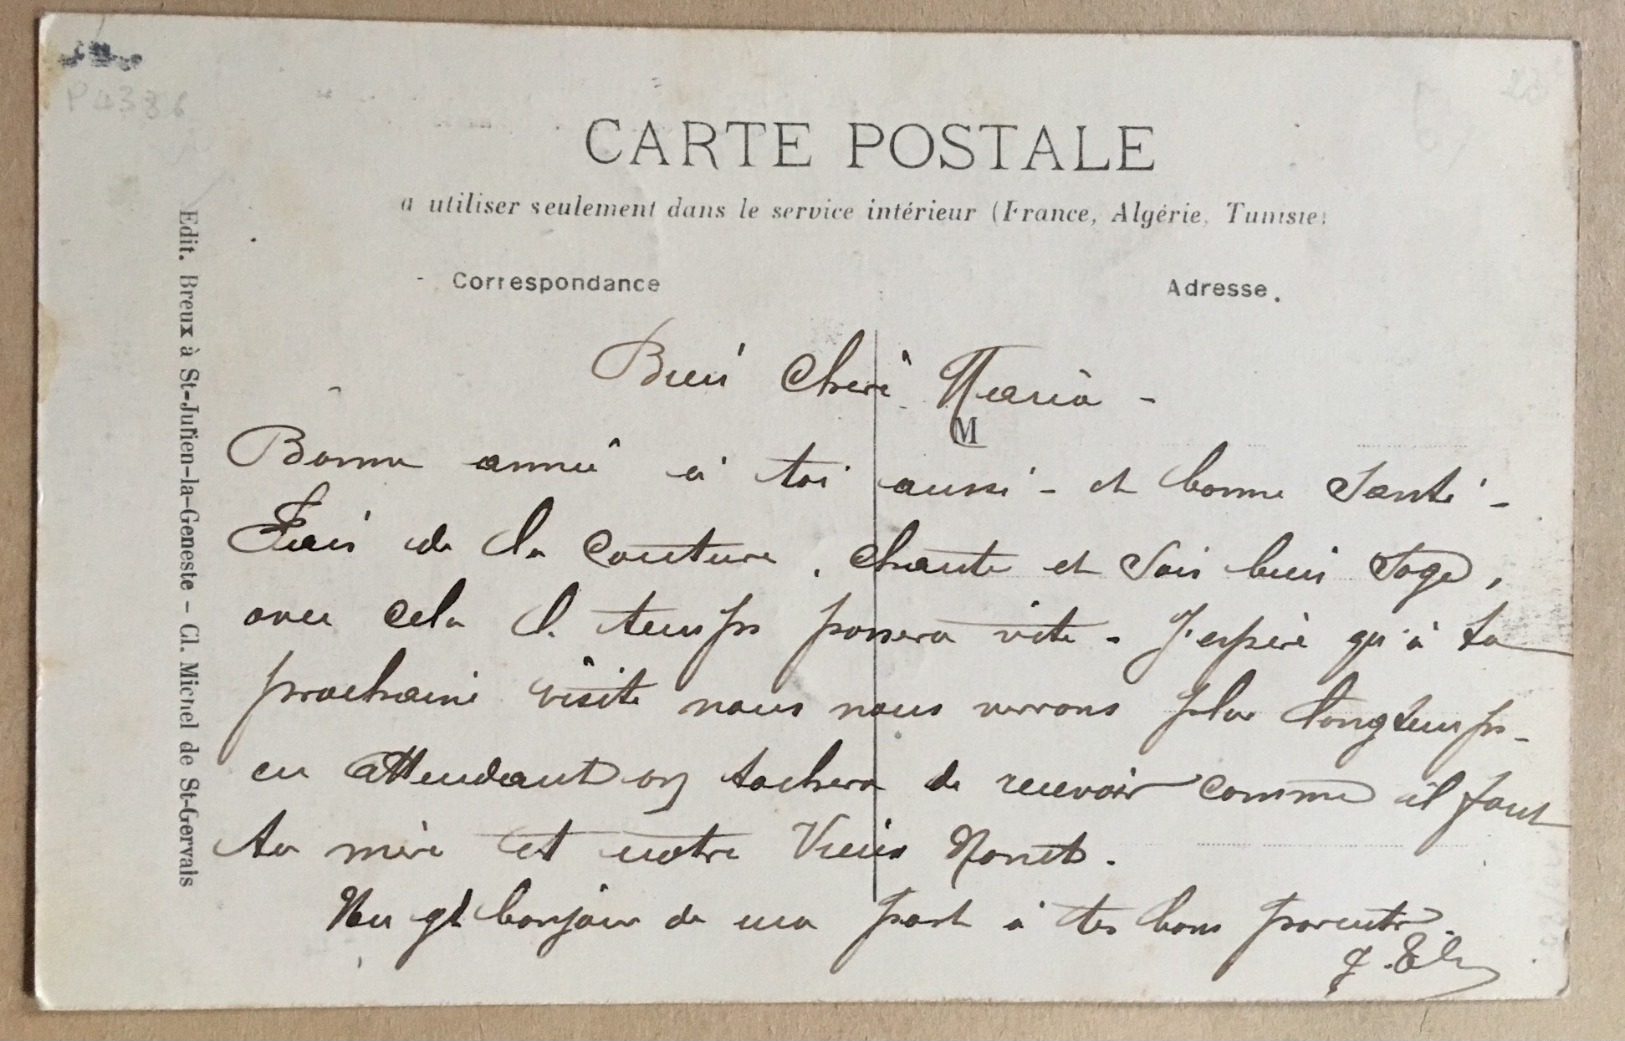 P4386
CARTE POSTALE
à utiliser seulement dans le service intérieur (France, Algérie, Tunisie)
Correspondance
Adresse.
M
Edit. Breux à St-Julien-la-Geneste - Cl. Michel de St-Gervais
Bien Chère Maria -
Bonne année à toi aussi - et bonne Santé -
Fais de la Couture, Chante et Sois bien Sage,
avec cela le temps passera vite - J'espère qu'à ta
prochaine visite nous nous verrons plus longtemps -
en attendant on tachera de recevoir comme il faut
ta mère et notre Vieux
Un gd bonjour de ma part à tes bons parents.